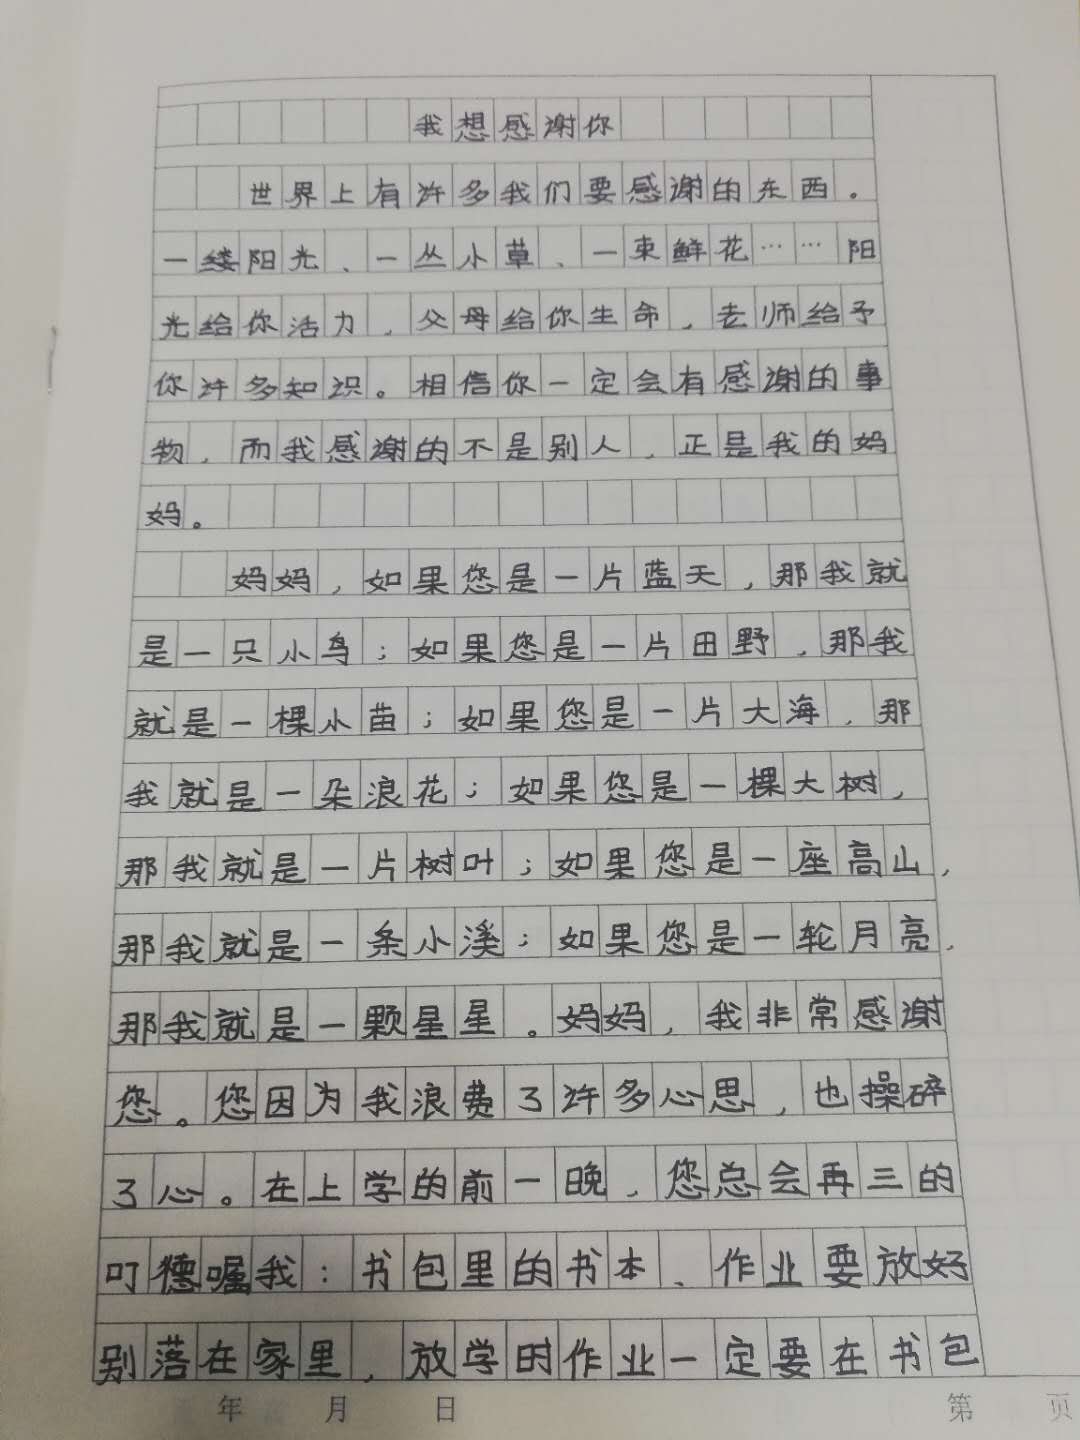 我想感谢你
世界上有许多我们要感谢的东西。
一缕阳光、一丛小草、一束鲜花……阳
光给你活力，父母给你生命，老师给予
你许多知识。相信你一定会有感谢的事
物，而我感谢的不是别人，正是我的妈
妈。
妈妈，如果您是一片蓝天，那我就
是一只小鸟；如果您是一片田野，那我
就是一棵小苗；如果您是一片大海，那
我就是一朵浪花；如果您是一棵大树，
那我就是一片树叶；如果您是一座高山，
那我就是一条小溪；如果您是一轮月亮，
那我就是一颗星星。妈妈，我非常感谢
您。您因为我浪费了许多心思，也操碎
了心。在上学的前一晚，您总会再三的
叮嘱我：书包里的书本、作业要放好
别落在家里，放学时作业一定要在书包
年 月 日 第 页